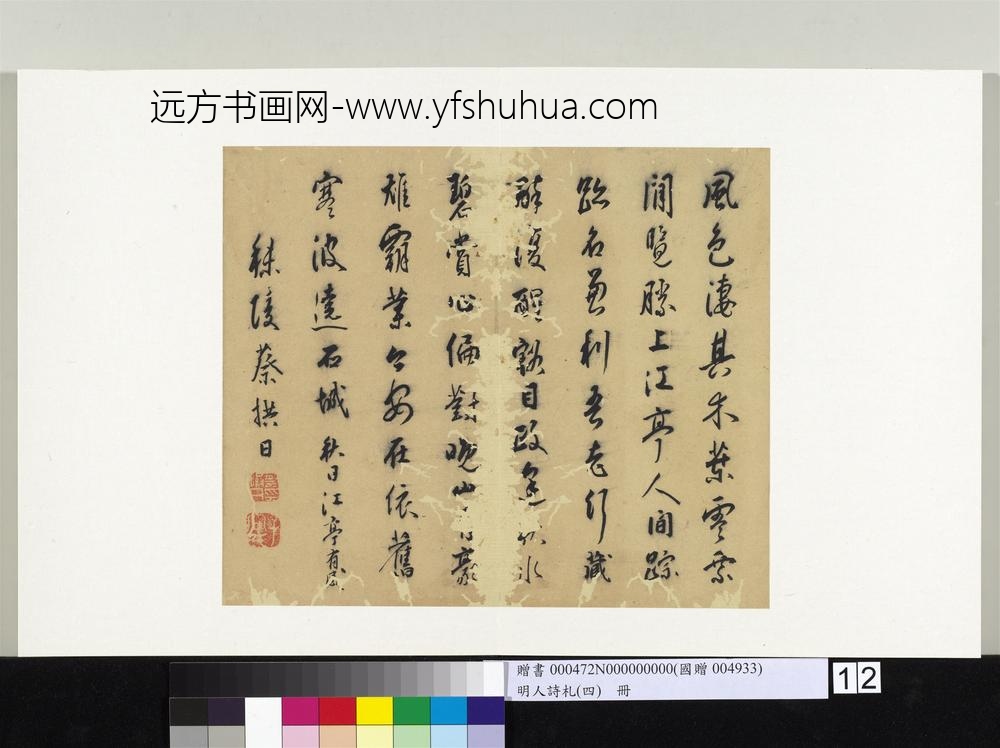 远方书画网-www.yfshuhua.com
風色淒其木葉零乘
閒覽勝上江亭人間蹤
跡名兼利吾老行藏
醉復醒豁目政逢秋水
碧賞心偏對晚山青豪
雄霸業今安在依舊
寒波遶石城 秋日江亭有感
秣陵蔡拱日
贈書 000472N000000000(國贈 004933)
明人詩札(四) 冊
12